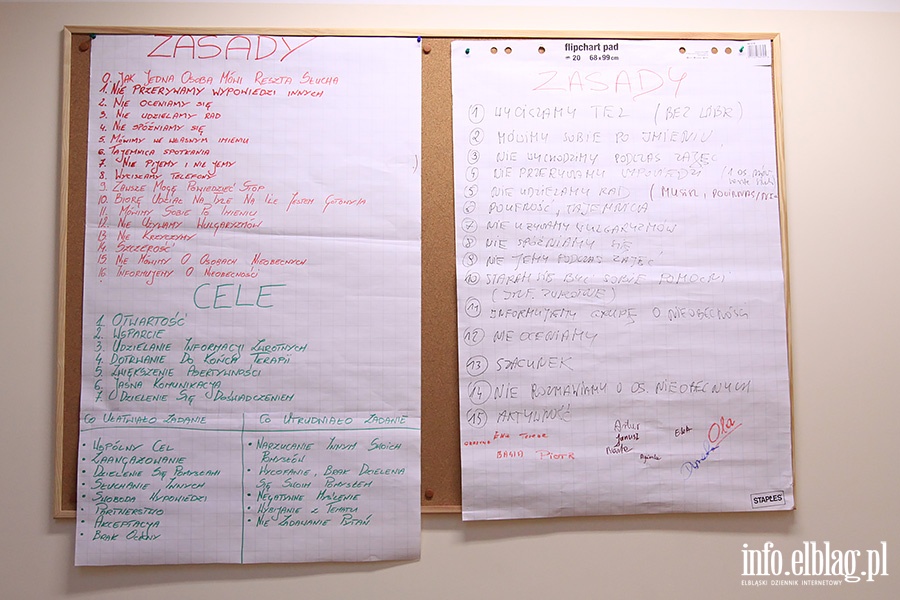 ZASADY
0. JAK JEDNA OSOBA MÓWI RESZTA SŁUCHA
1. NIE PRZERYWAMY WYPOWIEDZI INNYCH
2. NIE OCENIAMY SIĘ
3. NIE UDZIELAMY RAD
4. NIE SPÓŹNIAMY SIĘ
5. MÓWIMY WE WŁASNYM IMIENIU
6. TAJEMNICA SPOTKANIA
7. NIE PIJEMY I NIE JEMY
8. WYCISZAMY TELEFONY
9. ZAWSZE MOGĘ POWIEDZIEĆ STOP
10. BIORĘ UDZIAŁ NA TYLE NA ILE JESTEM GOTOWY/A
11. MÓWIMY SOBIE PO IMIENIU
12. NIE UŻYWAMY WULGARYZMÓW
13. NIE KRZYCZYMY
14. SZCZEROŚĆ
15. NIE MÓWIMY O OSOBACH NIEOBECNYCH
16. INFORMUJEMY O NIEOBECNOŚCI
CELE
1. OTWARTOŚĆ
2. WSPARCIE
3. UDZIELANIE INFORMACJI ZWROTNYCH
4. DOTRWANIE DO KOŃCA TERAPII
5. ZWIĘKSZENIE ASERTYWNOŚCI
6. JASNA KOMUNIKACJA
7. DZIELENIE SIĘ DOŚWIADCZENIEM
CO UŁATWIAŁO ZADANIE
• WSPÓLNY CEL
• ZAANGAŻOWANIE
• DZIELENIE SIĘ POMYSŁAMI
• SŁUCHANIE INNYCH
• SWOBODA WYPOWIEDZI
• PARTNERSTWO
• AKCEPTACJA
• BRAK OCENY
CO UTRUDNIAŁO ZADANIE
• NARZUCANIE INNYM SWOICH
POMYSŁÓW
• WYCOFANIE, BRAK DZIELENIA
SIĘ SWOIM POMYSŁEM
• NEGATYWNE MYŚLENIE
• WYBIJANIE Z TEMATU
• NIE ZADAWANIE PYTAŃ
flipchart pad
20 68x99cm
ZASADY
1 WYCISZAMY TEL (BEZ WIBR)
2 MÓWIMY SOBIE PO IMIENIU
3 NIE WYCHODZIMY PODCZAS ZAJĘĆ
4 NIE PRZERYWAMY WYPOWIEDZI (1 OS.
5 NIE UDZIELAMY RAD
6 POUFNOŚĆ, TAJEMNICA
7 NIE UŻYWAMY WULGARYZMÓW
8 NIE SPÓŹNIAMY SIĘ
9 NIE JEMY PODCZAS ZAJĘĆ
10 STARAM SIĘ BYĆ SOBIE POMOCNI
(INF. ZWROTNE)
11 INFORMUJEMY GRUPĘ O NIEOBECNOŚCI
12 NIE OCENIAMY
13 SZACUNEK
14 NIE ROZMAWIAMY O OS. NIEOBECNYCH
15 AKTYWNOŚĆ
Artur
Janusz
Ela
Ola
BASIA PIOTR
STAPLES
info.elblag.pl
ELBLĄSKI DZIENNIK INTERNETOWY